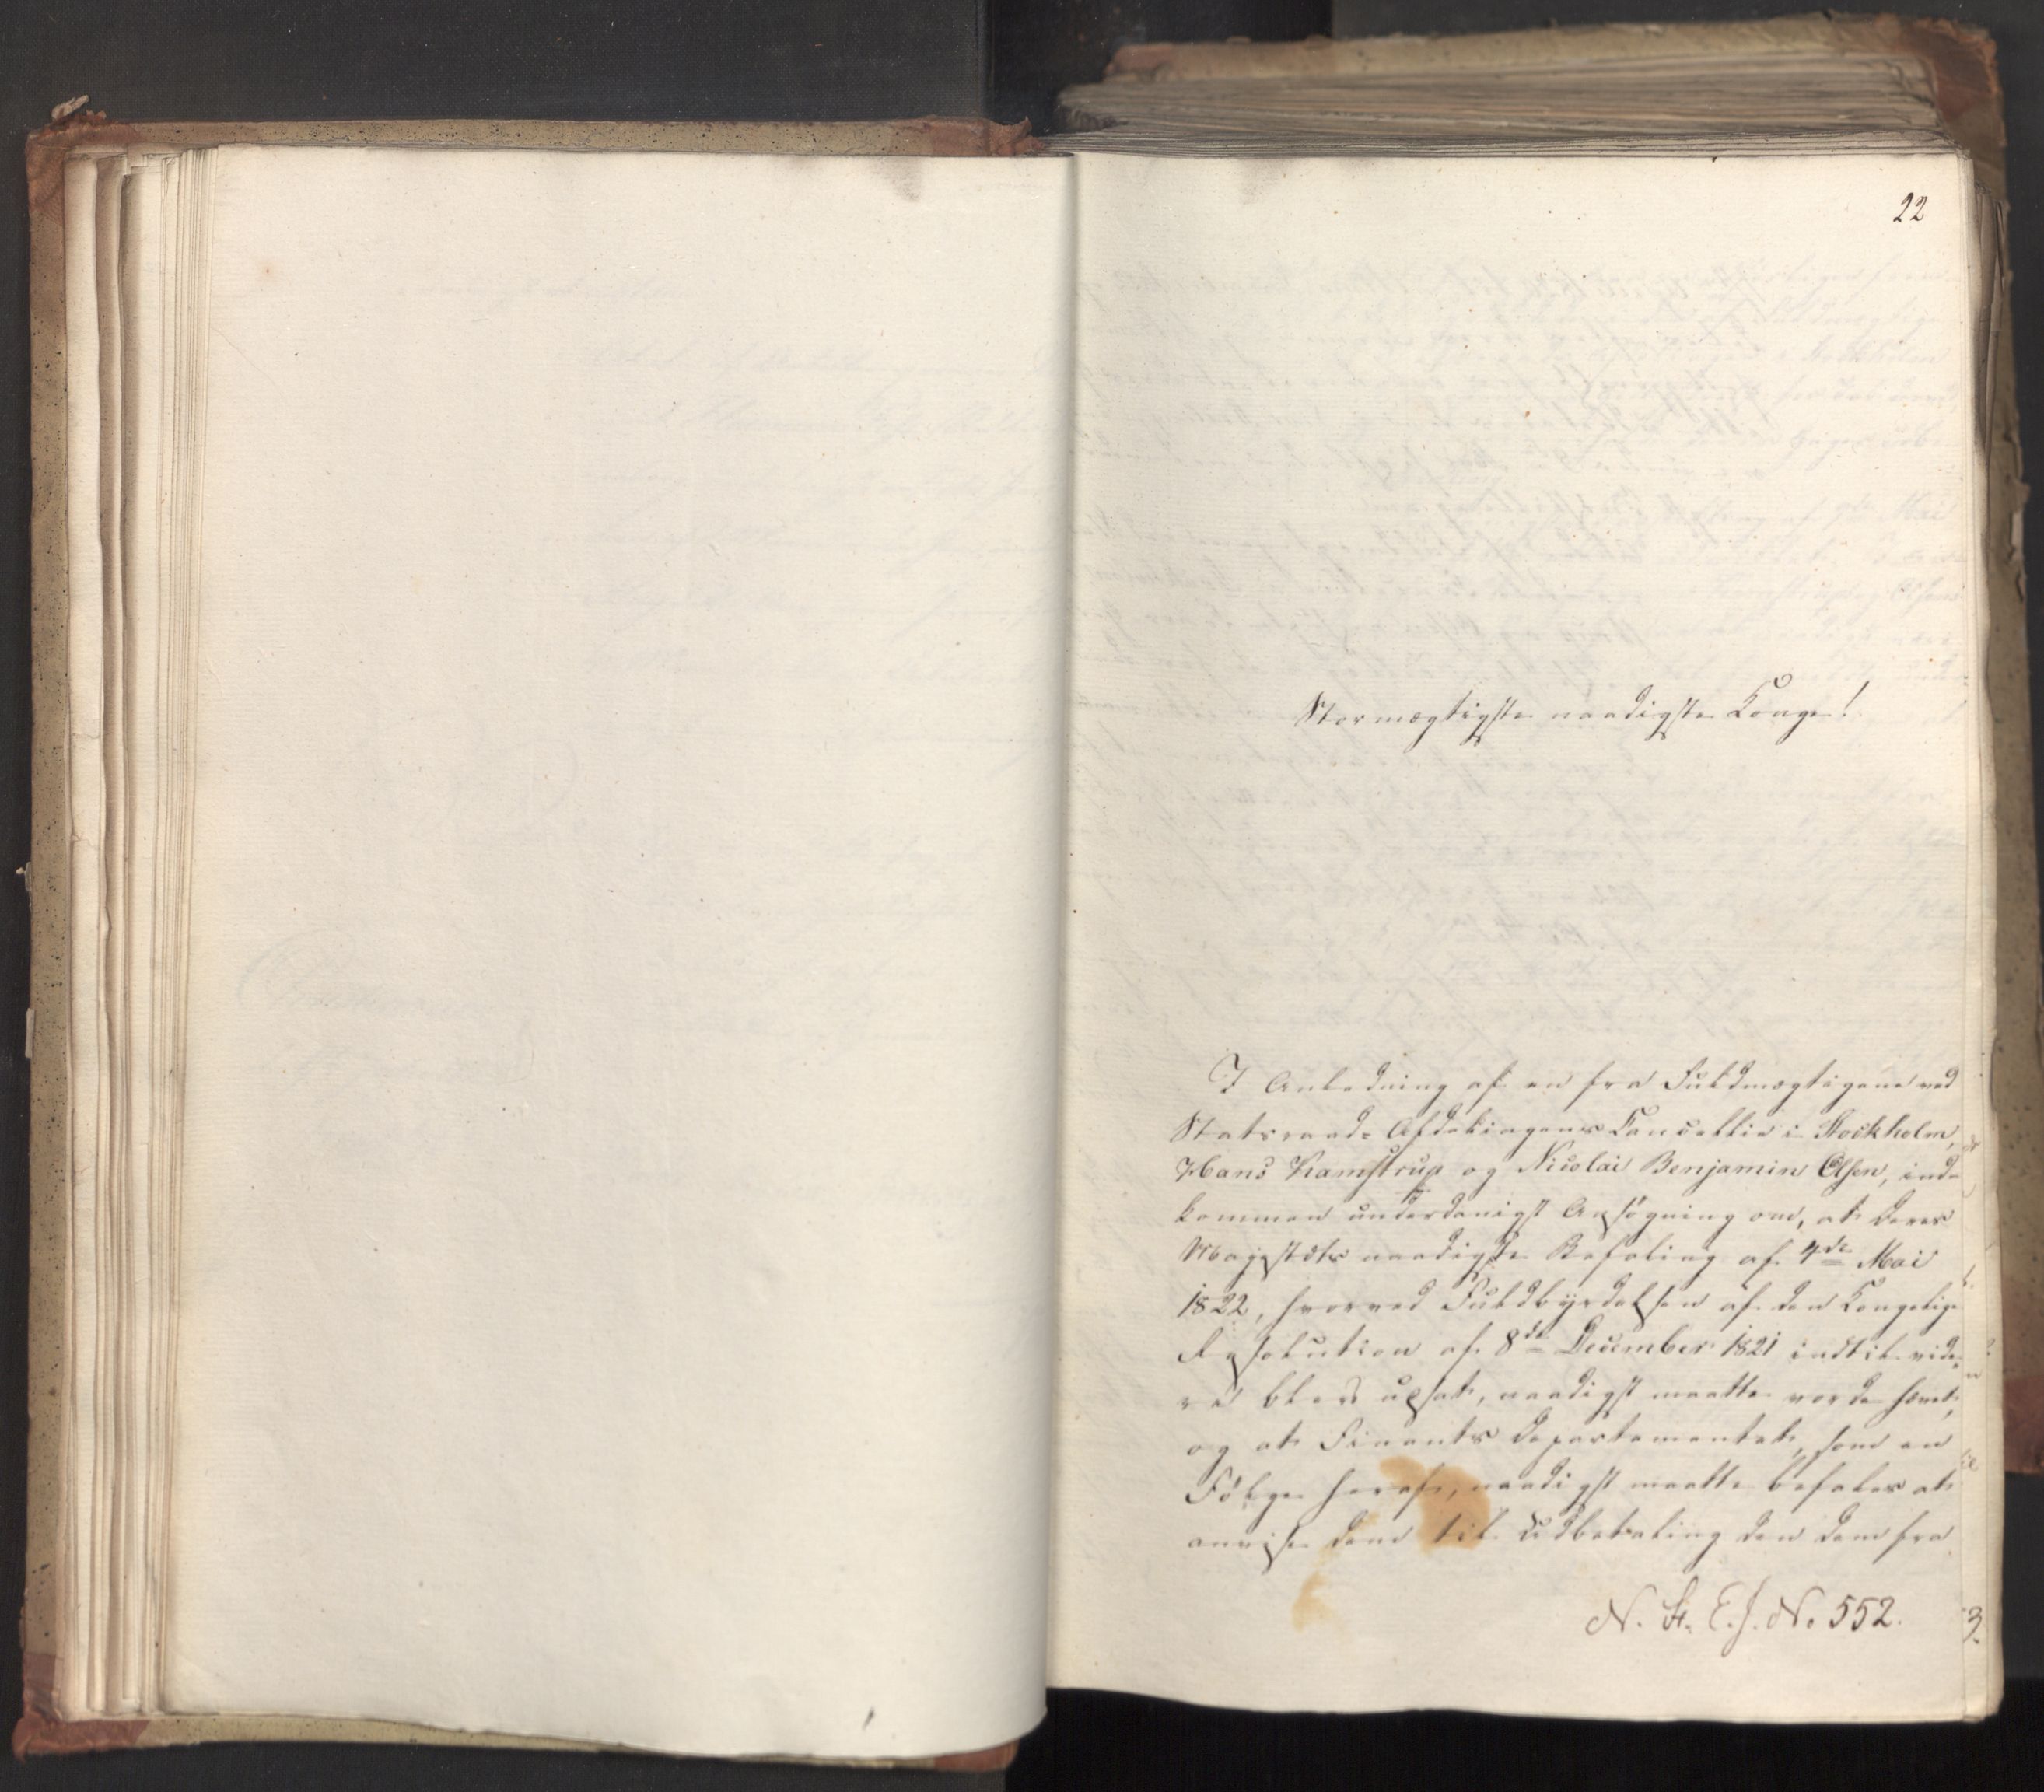 22
Stormægtigste naadigste Konge!
I Anledning af en fra Fuldmægtigene ved
Statsraads Afdelingens Cancellie i Stockholm,
Hans Kamstrup og Nicolai Benjamin Olsen, ind-
kommen underdanigst Ansøgning om, at Deres
Majestæts naadigste Befaling af 4de Mai
1822, hvorved Fuldbyrdelsen af den Kongelige
Resolution af 8de December 1821 indtil vide-
re blev udsat, naadigst maatte vorde hævet,
og at Finants Departementet, som en
Følge heraf, naadigst maatte befales at
anvise dem til Udbetaling den dem fra
N. St. E. J. No 552.